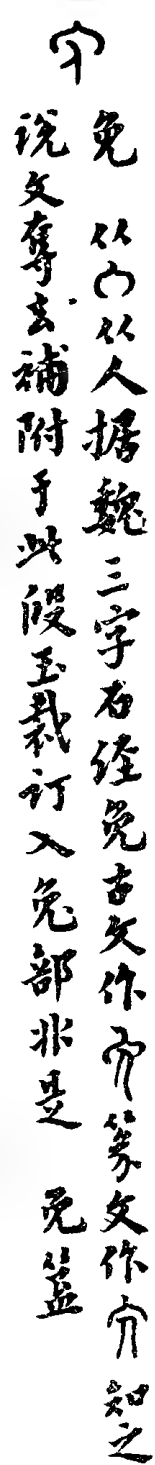 免　从宀从人据魏三字石经免古文作篆文作知之
说文夺去补附于此段玉裁订入兔部非是　免簋